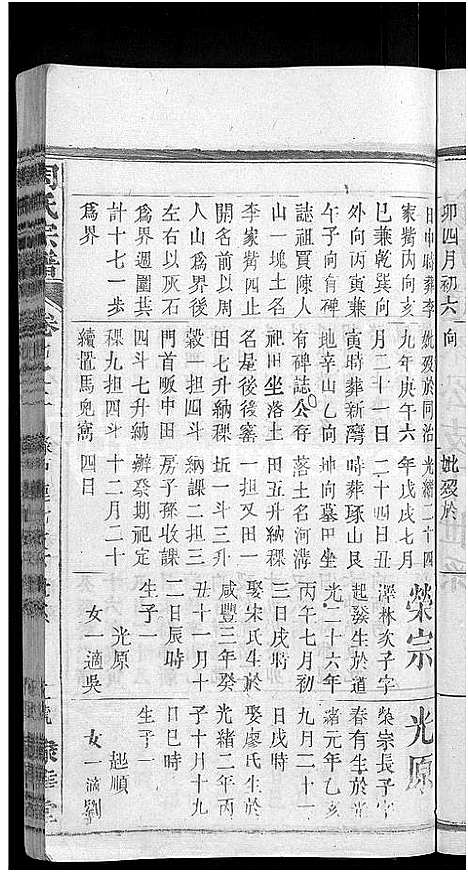 卯四月初六 向
妣歿於
日申時葬李
家嘴丙向亥
巳兼乾巽向
外向丙寅兼
午子向有碑
誌祖買陳人
山一塊土名
李家嘴四止
開名前以周
人山爲界後
左右以灰石
爲界週圍共
計十七一步
爲界
妣歿於同治
九年庚午六
月二十一日
寅時葬新灣
地辛山乙向
有碑誌公存
祀田坐落土
名屋後後窰
田七升納稞
穀一担四斗
門首畈中田
四斗七升納
稞九担四斗
續置馬皃窩
光緒二十四
年戊戌七月
二十四日丑
時葬琢山艮
坤向墓田坐
落土名河溝
田五升納稞
一担又田一
坵一斗三升
納課二担三
房子孫收課
辦祭期祀定
十二月二十
四日
榮宗
澤林次子字
起發生於道
光二十六年
丙午七月初
三日戌時
娶宋氏生於
咸豐三年癸
丑十一月十
二日辰時
生子一
光原
女一適吳
光原
榮宗長子字
春有生於光
緒元年乙亥
九月二十一
日戌時
娶廖氏生於
光緒二年丙
子十月十九
日巳時
生子一
起順
女一適劉
周氏宗譜
卷
堂